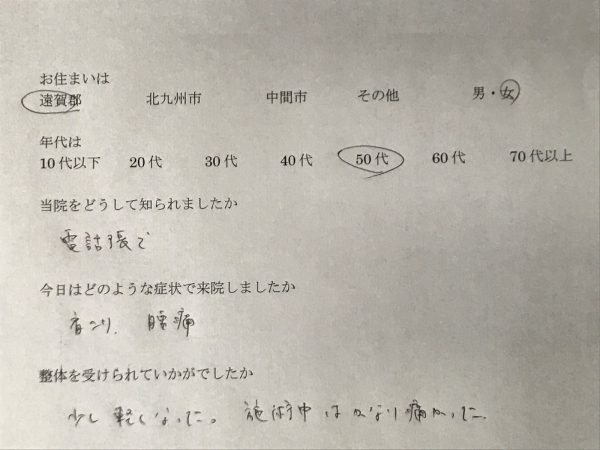 お住まいは
遠賀郡 北九州市 中間市 その他 男・女
年代は
10代以下 20代 30代 40代 50代 60代 70代以上
当院をどうして知られましたか
電話張で
今日はどのような症状で来院しましたか
肩こり、腰痛
整体を受けられていかがでしたか
少し軽くなった。施術中はかなり痛かった。